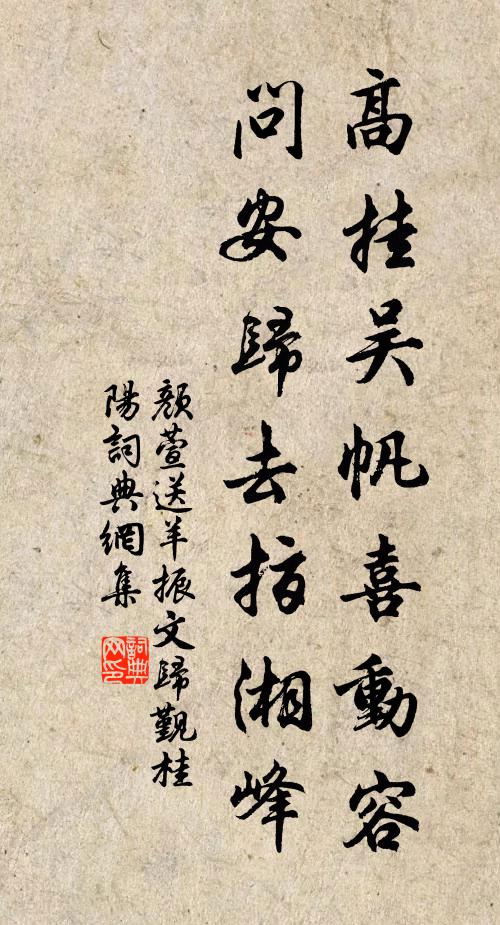 高挂吴帆喜動容
問安歸去指湘峰
顏萱送羊振文歸覲桂
陽詞典網集
詞典
网印